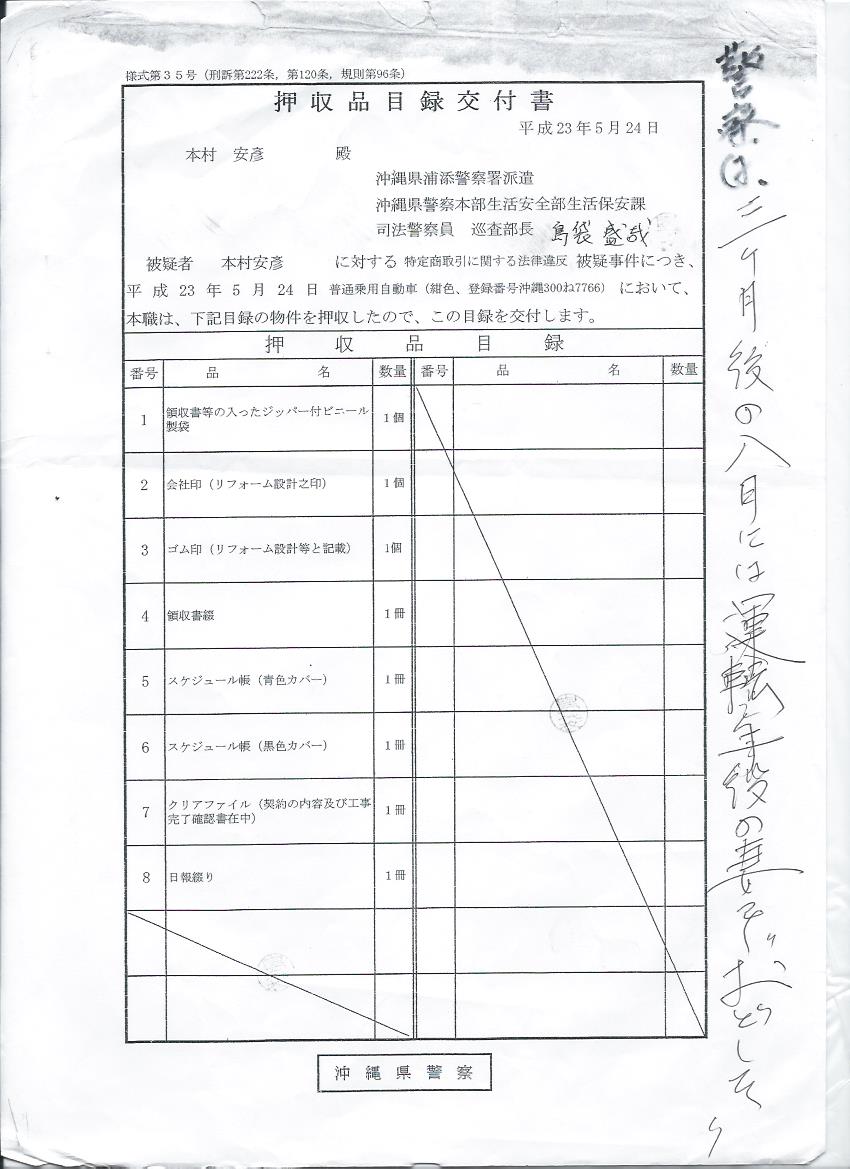 様式第３５号（刑訴第222条，第120条，規則第96条）
押収品目録交付書
平成23年5月24日
本村　安彦　殿
沖縄県浦添警察署派遣
沖縄県警察本部生活安全部生活保安課
司法警察員　巡査部長　島袋 盛哉
被疑者　本村安彦　に対する 特定商取引に関する法律違反 被疑事件につき、
平成 23 年 5 月 24 日 普通乗用自動車（紺色、登録番号沖縄300ね7766） において、
本職は、下記目録の物件を押収したので、この目録を交付します。
押収品目録
番号　品名　数量　番号　品名　数量
1　領収書等の入ったジッパー付ビニール
製袋　1個
2　会社印（リフォーム設計之印）　1個
3　ゴム印（リフォーム設計等と記載）　1個
4　領収書綴　1冊
5　スケジュール帳（青色カバー）　1冊
6　スケジュール帳（黒色カバー）　1冊
7　クリアファイル（契約の内容及び工事
完了確認書在中）　1冊
8　日報綴り　1冊
沖縄県警察
警察は、三ヶ月後の八月には運転手役の妻をおどしそ